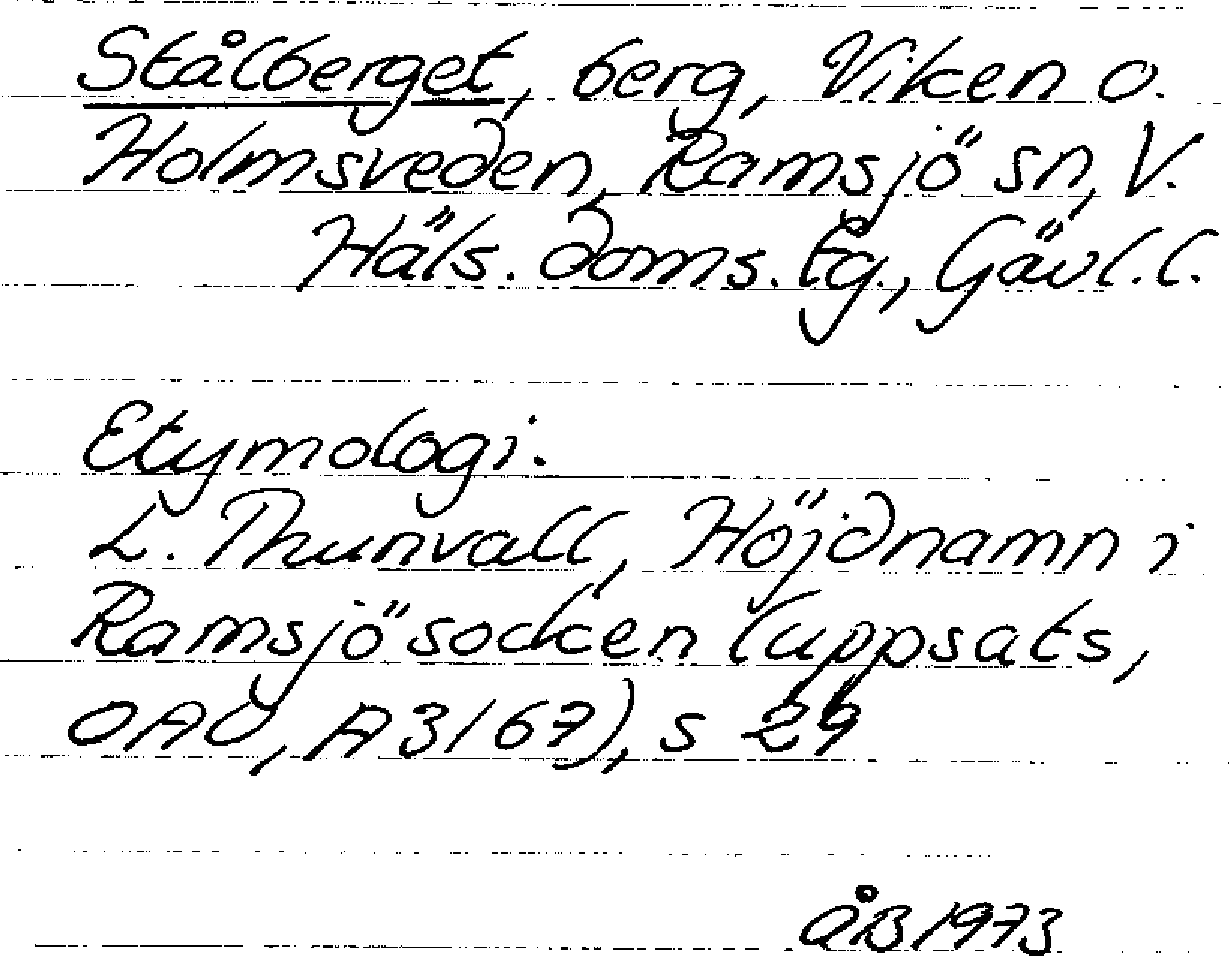 Stålberget, berg, Viken o.
Holmsveden, Ramsjö sn, V.
Häls. doms. tg., Gävl. l.
Etymologi.
L. Thunvall, Höjdnamn i
Ramsjö socken (uppsats,
OAU, A3167), s 29
ÅB 1973